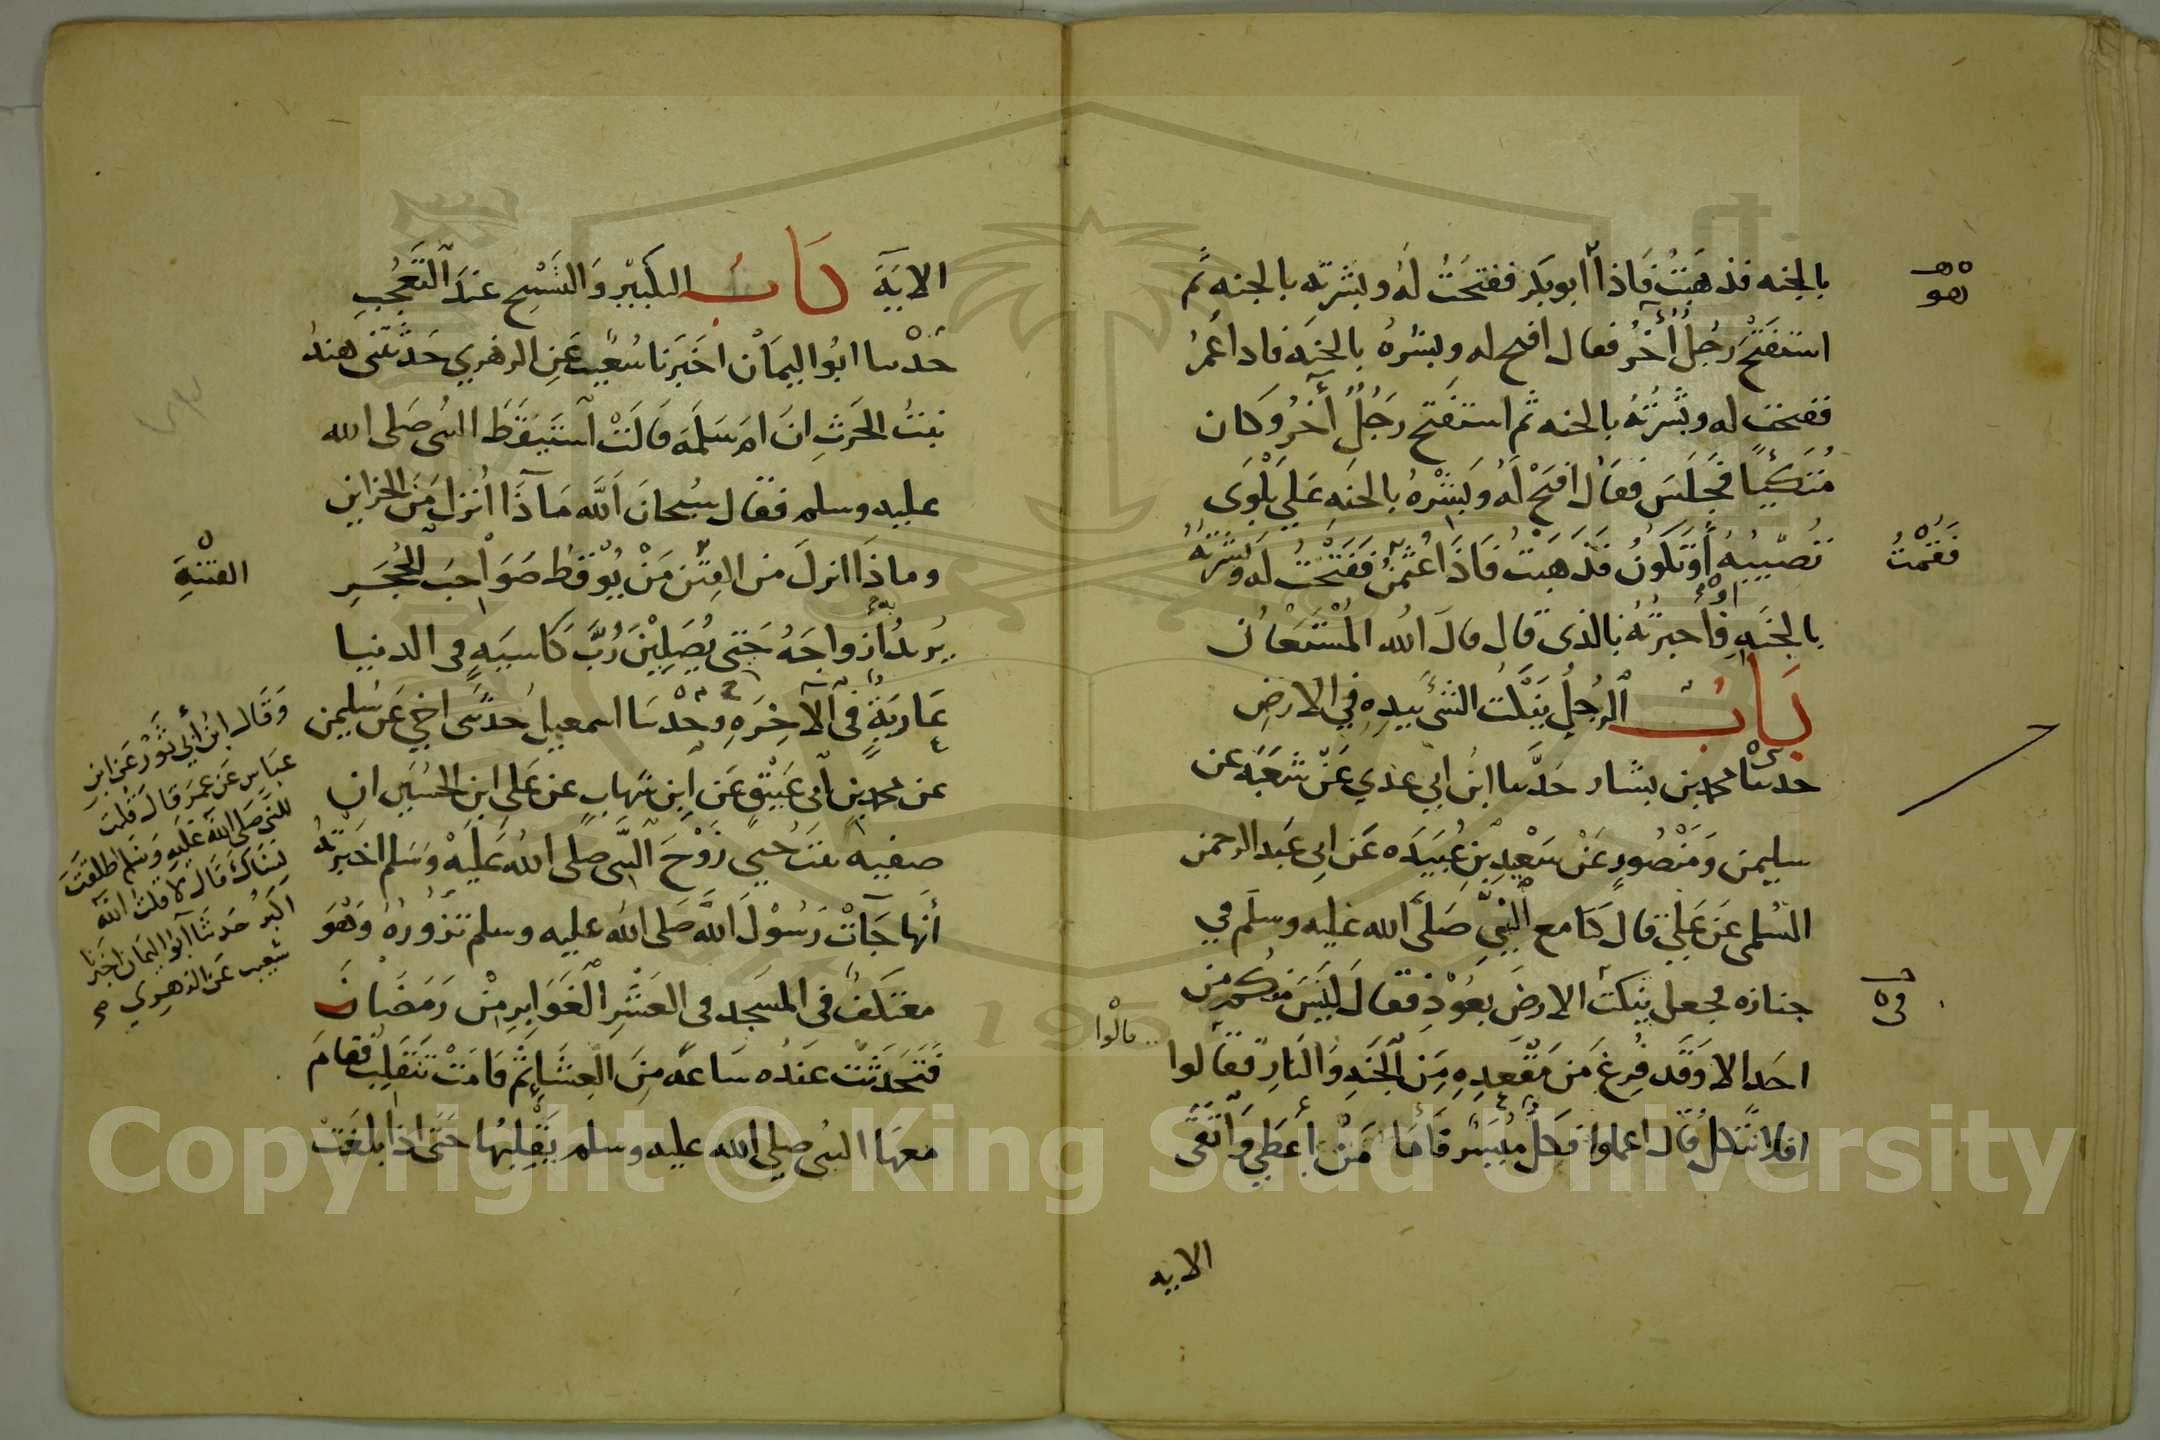 بالجنه فذهبت فاذا ابو بكر ففتحت له وبشرته بالجنه ثم
هو
استفتح رجل آخر فقال افتح له وبشره بالجنه فاذا عمر
ففتحت له وبشرته بالجنه ثم استفتح رجل آخر وكان
متكئا فجلس فقال افتح له وبشره بالجنه على بلوى
تصيبه او تكون فذهبت فاذا عثمن ففتحت له وبشرته
فقمت
بالجنه فاخبرته بالذى قال قال الله المستعان
باب الرجل ينكت الشئ بيده في الارض
حدثنا محمد بن بشار حدثنا ابن ابي عدي عن شعبه عن
سليمن ومنصور عن سعيد بن عبيده عن ابي عبد الرحمن
السلمى عن علي قال كنا مع النبي صلى الله عليه وسلم في
جنازه فجعل ينكت الارض بعود فقال ليس منكم من
في
احد الا وقد فرغ من مقعده من الجنه والنار فقالوا
قالوا
افلا نتكل قال اعملوا فكل ميسر فاما من أعطى واتقى
الايه
الاية باب التكبير والتسبيح عند التعجب
حدثنا ابو اليمان اخبرنا شعيب عن الزهري حدثتني هند
بنت الحرث ان ام سلمه قالت استيقظ النبى صلى الله
عليه وسلم فقال سبحان الله ماذا انزل من الخزاين
وماذا انزل من الفتن من يوقظ صواحب الحجر
الفتنة
يريد أزواجه حتى يصلين رب كاسيه في الدنيا
عارية فى الآخره وحدثنا اسمعيل حدثنى اخي عن سليمن
عن محمد بن ابى عتيق عن ابن شهاب عن علي ابن الحسين ان
صفيه بنت حيي زوج النبى صلى الله عليه وسلم اخبرته
أنها جآت رسول الله صلى الله عليه وسلم تزوره وهو
معتكف فى المسجد فى العشر الغوابر من رمضان
فتحدثت عنده ساعه من العشاء ثم قامت تنقلب فقام
معها النبى صلى الله عليه وسلم يقلبها حتى اذا بلغت
وقال ابن أبي ثور عن ابن
عباس عن عمر قال قلت
للنبي صلى الله عليه وسلم طلقت
نساك قال لا قلت الله
اكبر حدثنا ابو اليمان اخبرنا
شعيب عن الزهري
Copyright © King Saud University
195